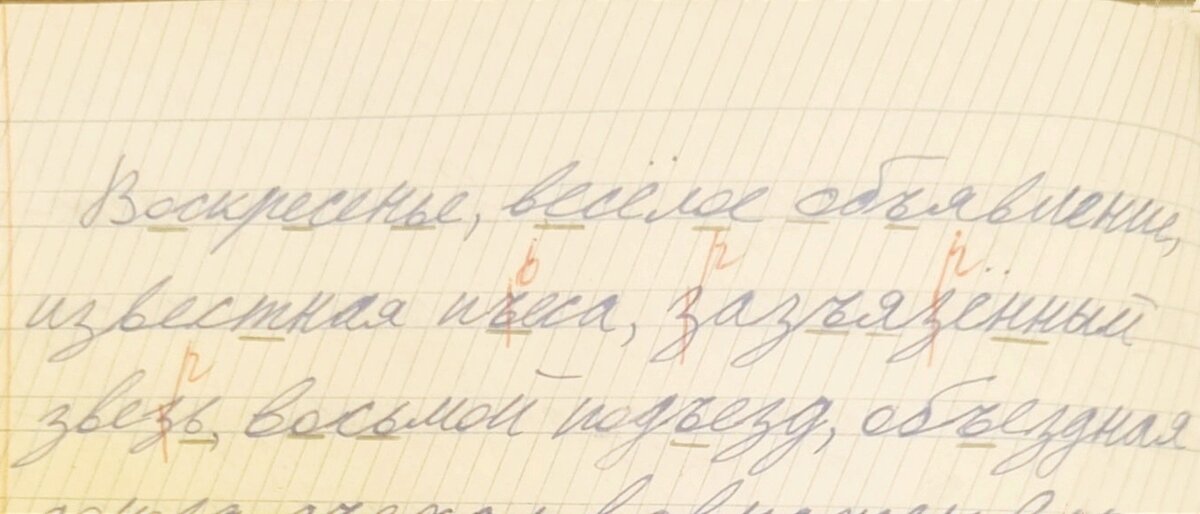 Воскресенье, весёлое объявление,
ь р р
известная пъеса, зазъязённый
р
звезь, восьмой подъезд, объездная